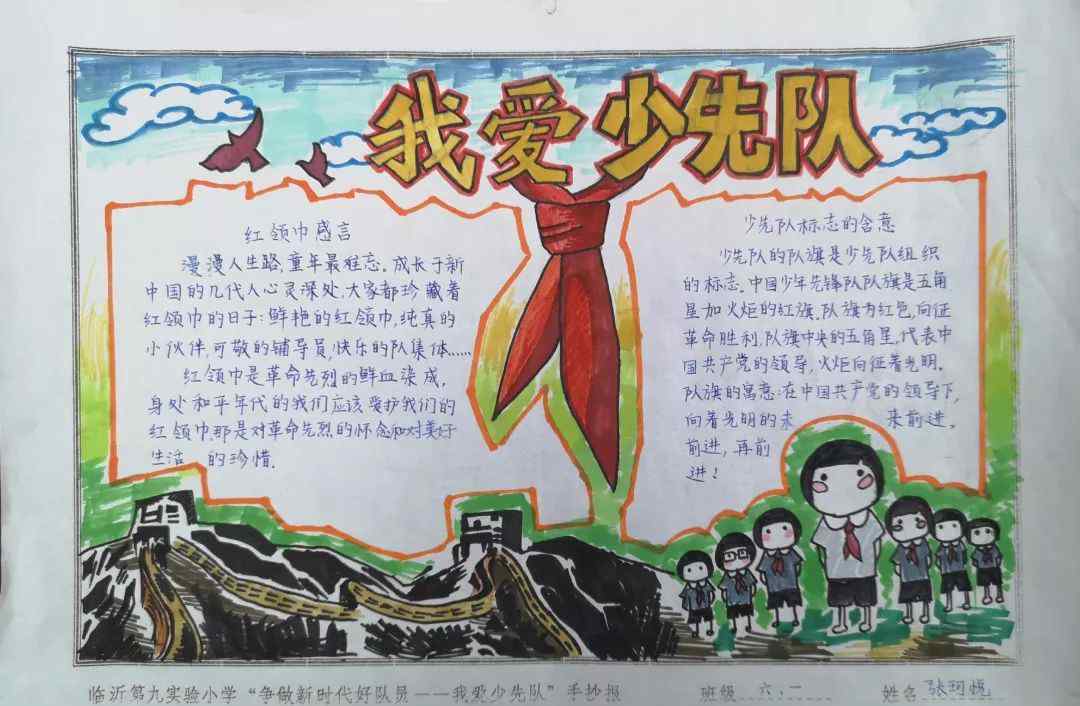 我爱少先队
红领巾感言
漫漫人生路,童年最难忘。成长于新
中国的几代人心灵深处,大家都珍藏着
红领巾的日子:鲜艳的红领巾,纯真的
小伙伴,可敬的辅导员,快乐的队集体……
红领巾是革命先烈的鲜血染成,
身处和平年代的我们应该爱护我们的
红领巾,那是对革命先烈的怀念和对美好
生活 的珍惜.
少先队标志的含意
少先队的队旗是少先队组织
的标志。中国少年先锋队队旗是五角
星加火炬的红旗.队旗为红色,向征
革命胜利,队旗中央的五角星,代表中
国共产党的领导,火炬向征着光明。
队旗的寓意:在中国共产党的领导下,
向着光明的未 来前进。
前进,再前
进!
临沂第九实验小学“争做新时代好队员——我爱少先队”手抄报 班级 六.一 姓名 张珂悦